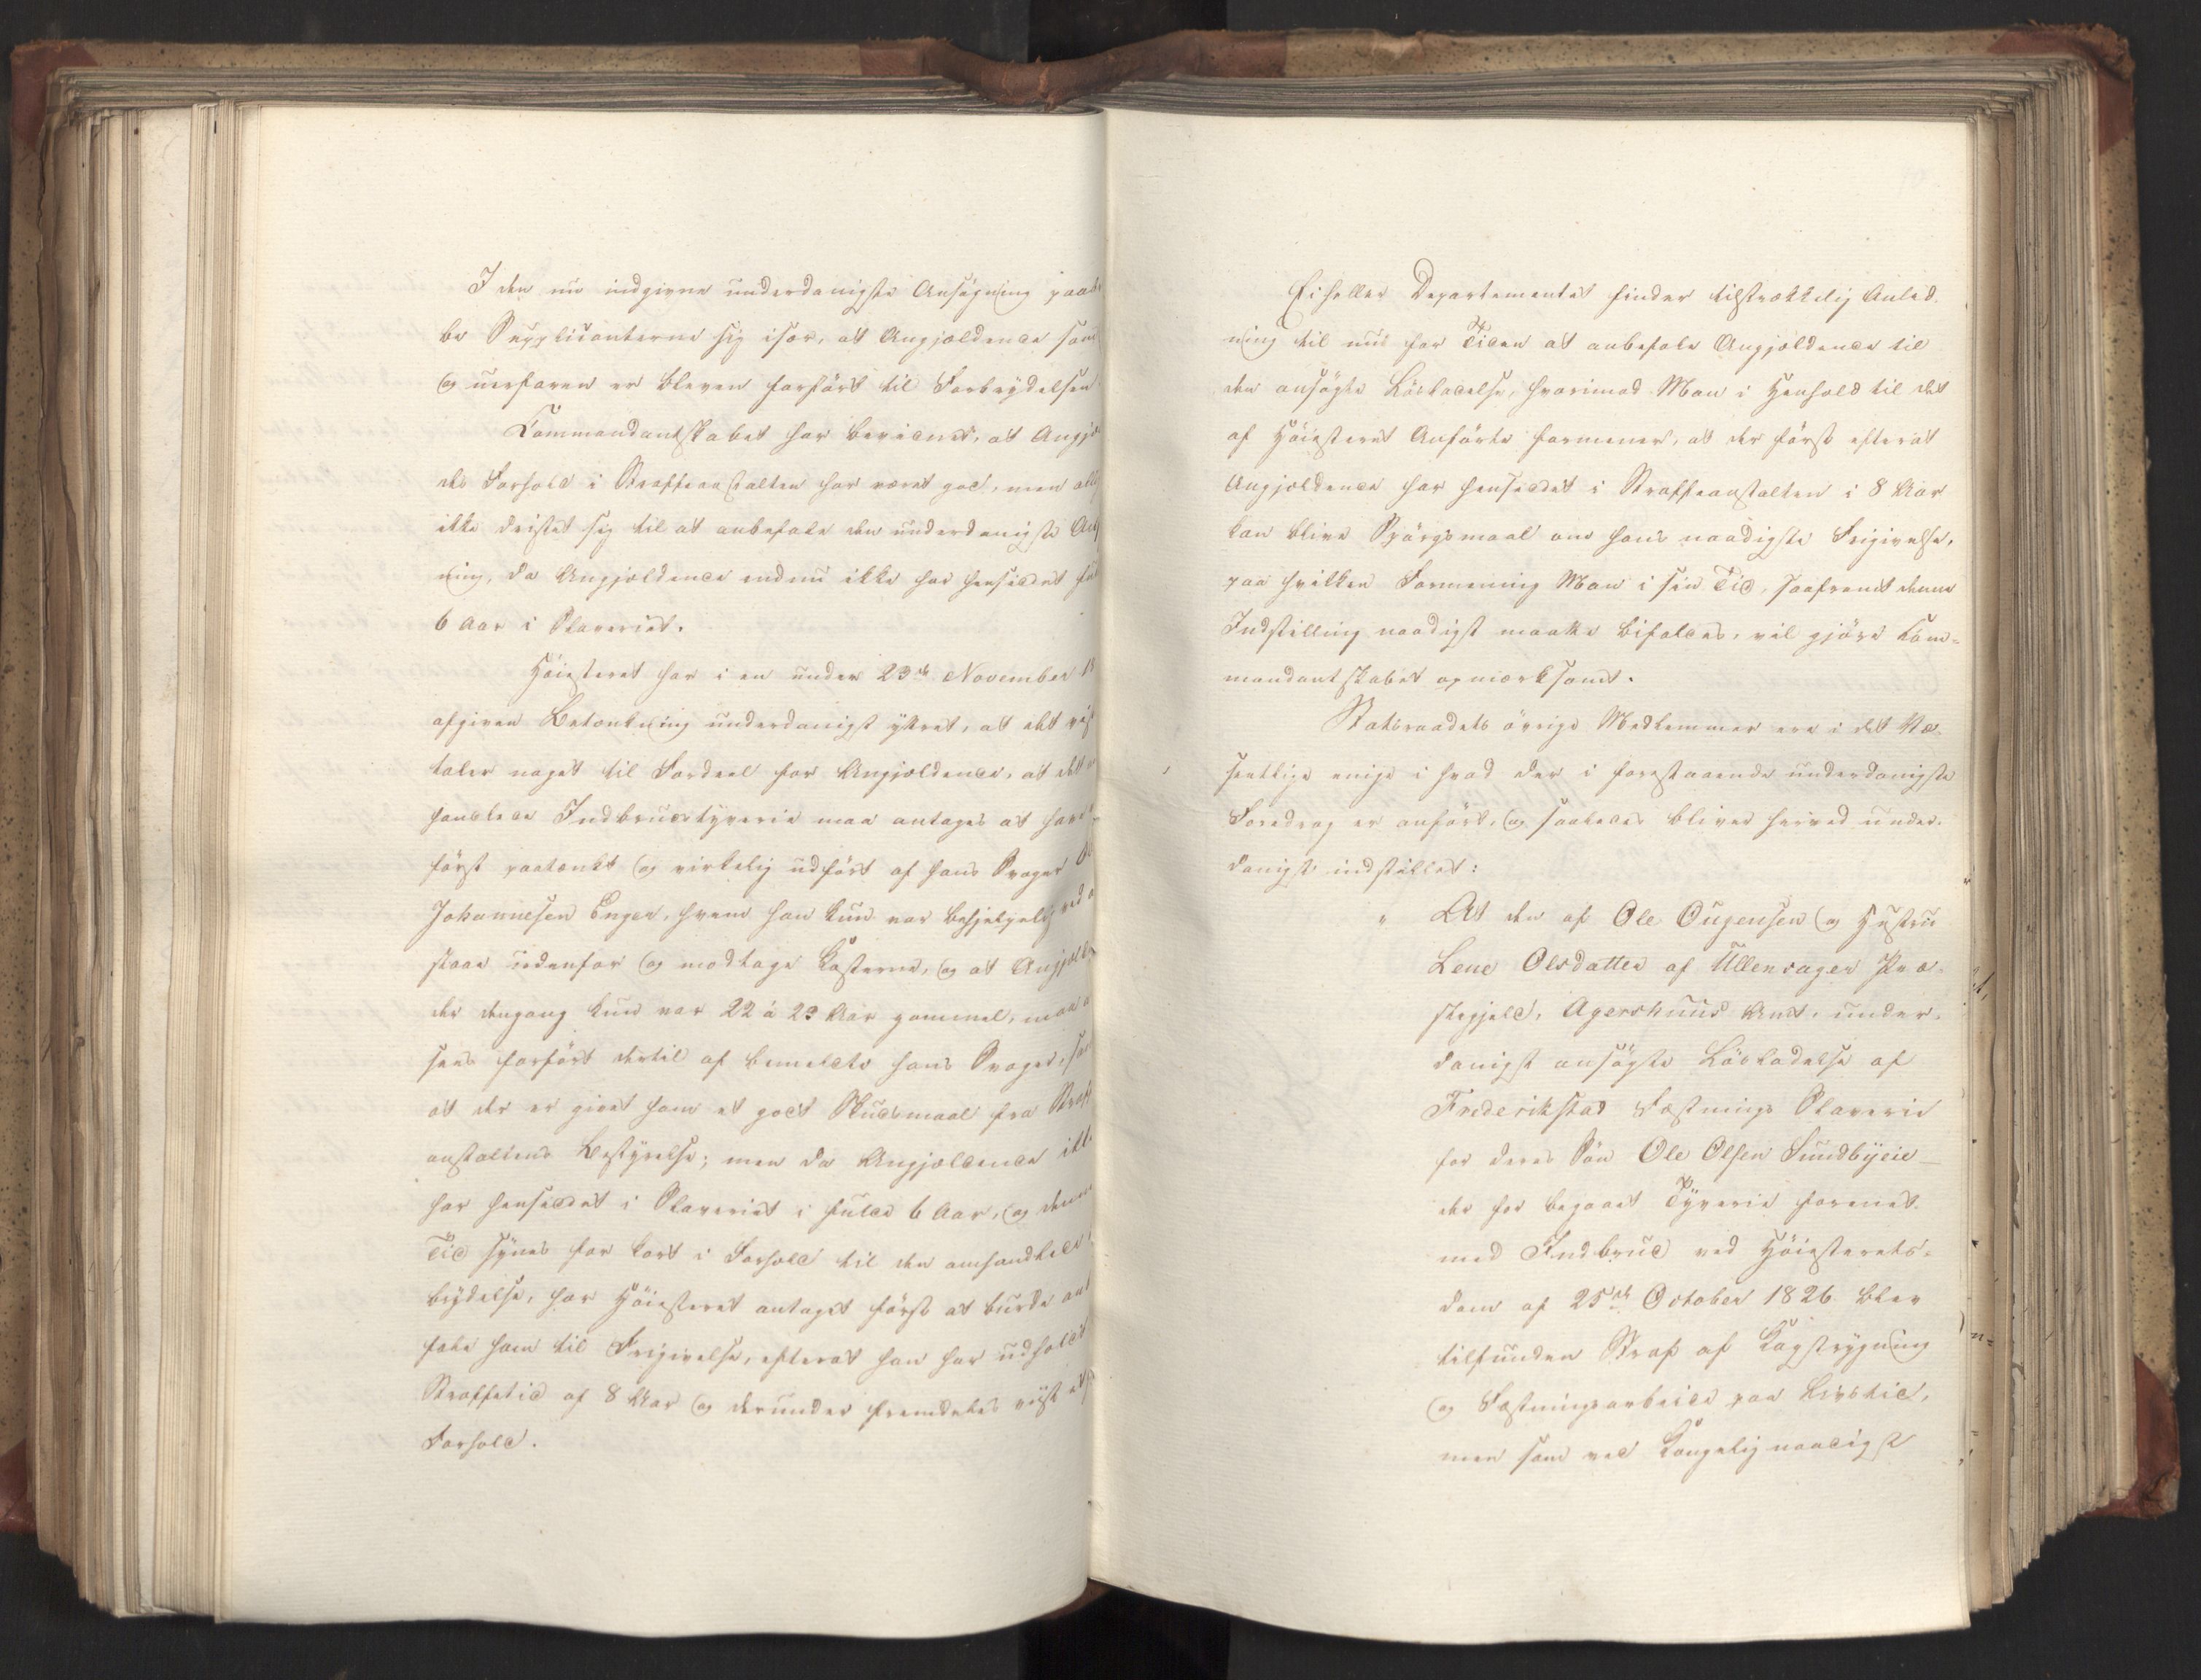 I den nu indgivne underdanigste Ansøgning paabe
be Supplicanterne sig især, at Angjældende som
og uerfaren er bleven forført til Forbrydelsen.
Commandantskabet har bevidnet, at Angjæ
des Forhold i Straffeanstalten har været god, men
ikke dristet sig til at anbefale den underdanigste
ning, da Angjældende endnu ikke har hensiddet
6 Aar i Slaveriet.
Höiesteret har i en under 23de November 18
afgiven Betænkning underdanigst yttret, at det
taler noget til Fordeel for Angjældende, at det
handlede Indbrudstyverie maa antages at have
først paatænkt og virkelig udført af hans Svoger
Johannesen Enger, hvem han kun var behjelpelig ved
staae udenfor og modtage Kosterne, og at Angjæld
der dengang kun var 22 á 23 Aar gammel, maa
sees forført dertil af bemeldte hans Svoger,
at der er givet ham et godt Skudsmaal fra Straf
anstaltens Bestyrelse; men da Angjældende ikke
har hensiddet i Slaveriet i fulde 6 Aar, og denne
Tid synes for kort i Forhold til den omhandlede
brydelse, har Höiesteret antaget først at burde
fale ham til Frigivelse, efterat han har udholdt
Straffetid af 8 Aar og derunder fremdeles viist
Forhold.
Ei heller Departementet finder tilstrækkelig Anled-
ning til nu for Tiden at anbefale Angjældende til
den ansøgte Løsladelse, hvorimod Man i Henhold til det
af Höiesteret Anførte formener, at der først efterat
Angjældende har hensiddet i Straffeanstalten i 8 Aar
kan blive Spørgsmaal om hans naadigste Frigivelse,
paa hvilken Formening Man i sin Tid, saafremt denne
Indstilling naadigst maatte bifaldes, vil gjøre Kom-
mandantskabet opmærksomt.
Statsraadets øvrige Medlemmer ere i det Væ-
sentlige enige i hvad der i forestaaende underdanigste
Foredrag er anført, og saaledes bliver herved under-
danigst indstillet:
" At den af Ole Ougensen og Hustru
Lene Olsdatter af Ullensager Præ-
stegjeld, Agershuus Amt, under-
danigst ansøgte Løsladelse af
Frederikstad Fæstnings Slaverie
for deres Søn Ole Olsen Sundbyeie
der for begaaet Tyverie forenet
med Indbrud ved Höiesterets-
dom af 25de October 1826 blev
tilfunden Straf af Kagstrygning
og Fæstningsarbeide paa Livstid,
men som ved Kongelig naadigst